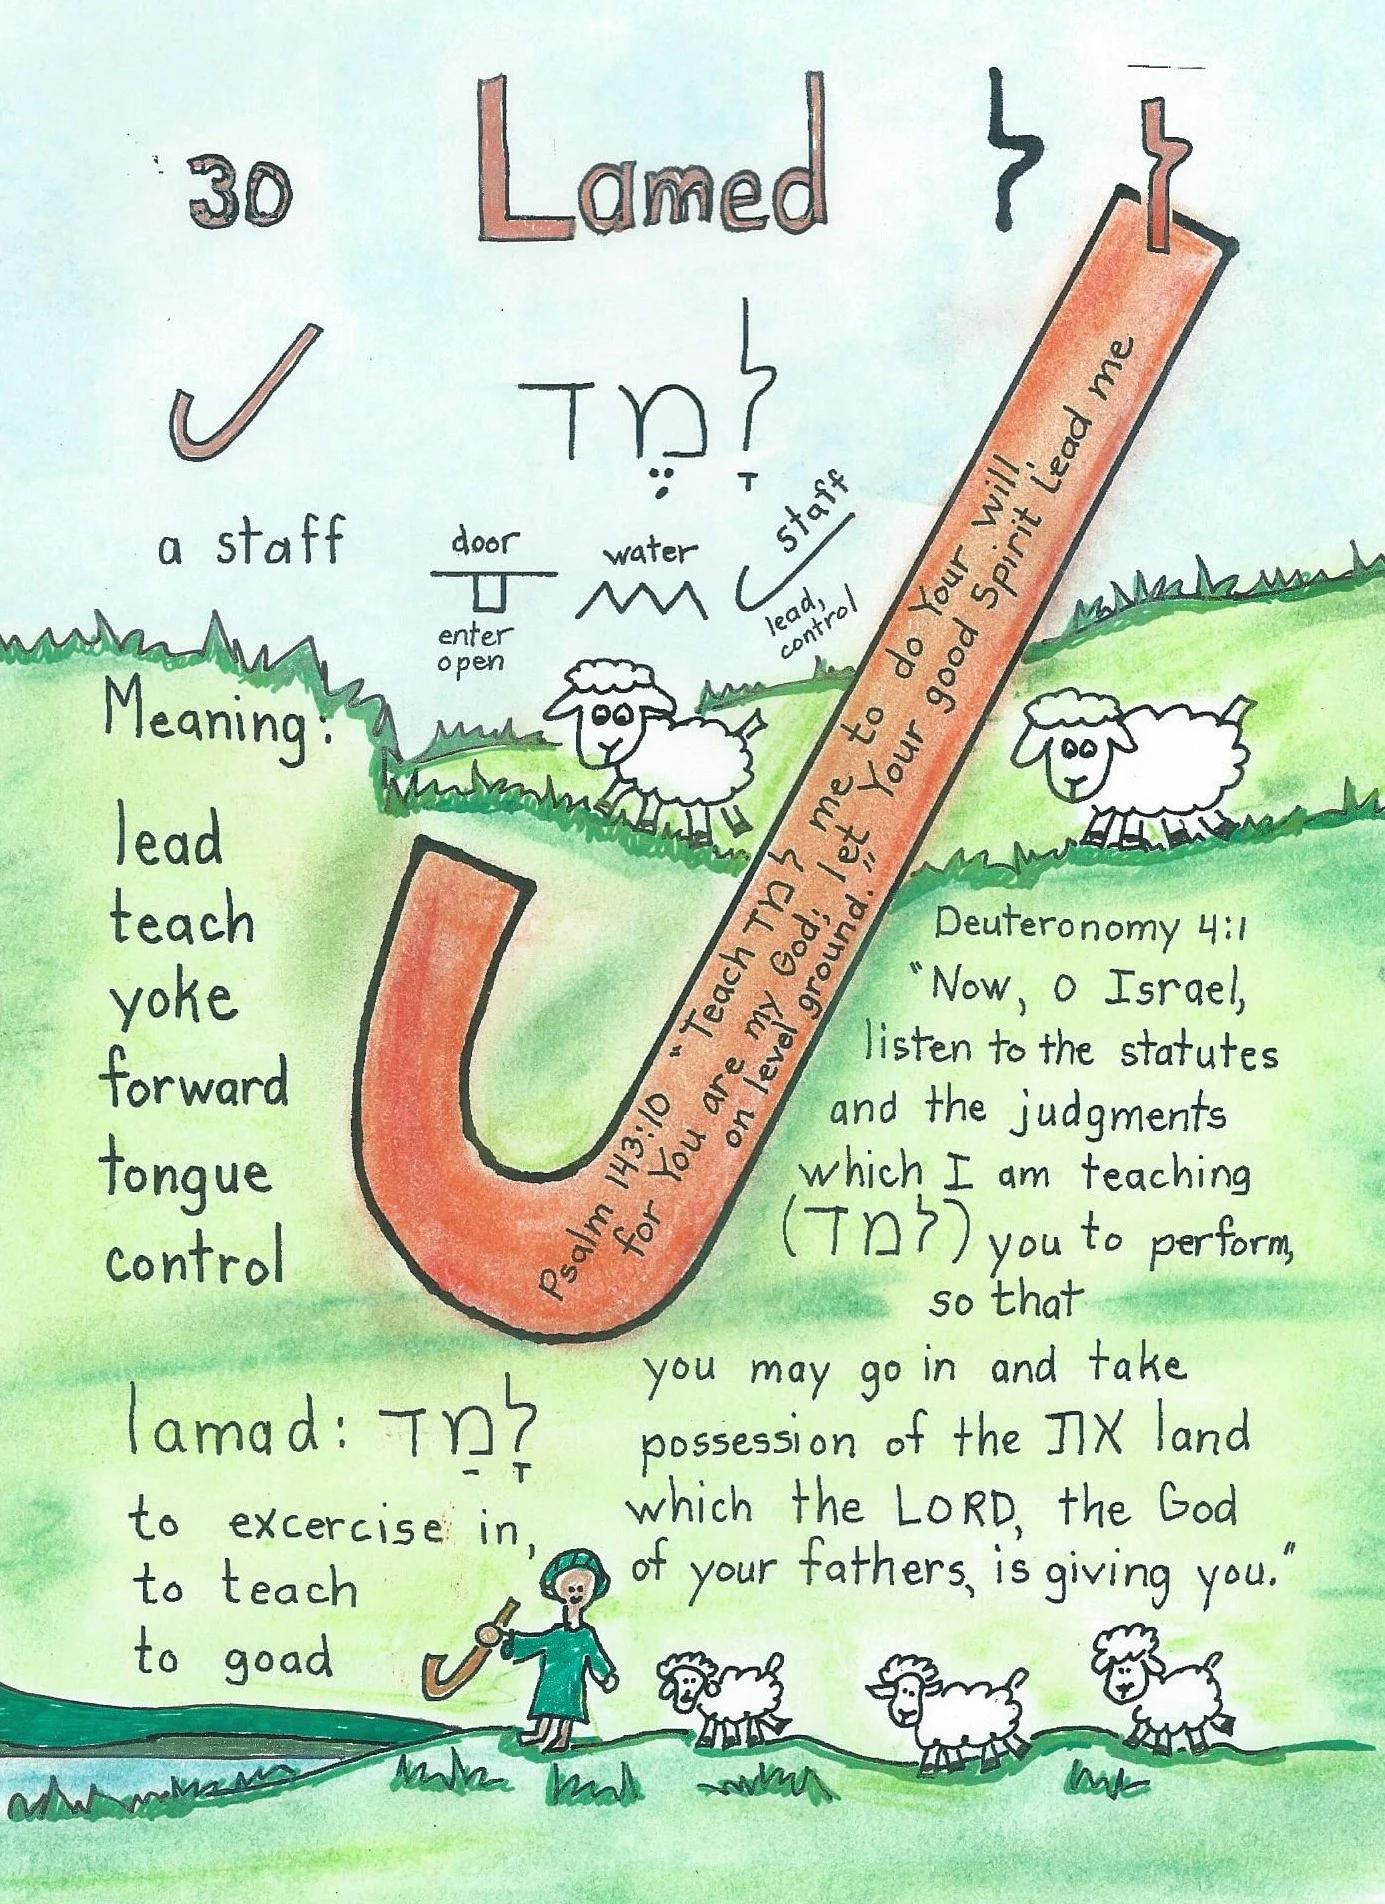 30 Lamed ל ל
לָמֶד
a staff
door
water
staff
lead,
control
enter
open
Meaning:
lead
teach
yoke
forward
tongue
control
Psalm 143:10 "Teach למד me to do Your will
for You are my God; let Your good Spirit lead me
on level ground."
Deuteronomy 4:1
"Now, O Israel,
listen to the statutes
and the judgments
which I am teaching
(למד) you to perform,
so that
you may go in and take
possession of the את land
which the LORD, the God
of your fathers, is giving you."
lamad: לָמַד
to excercise in,
to teach
to goad